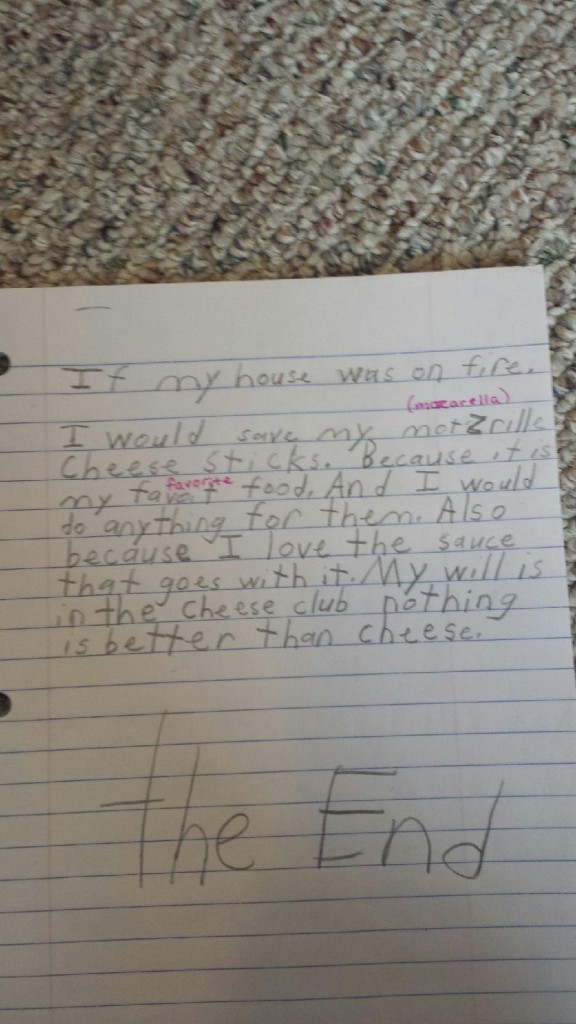 If my house was on fire.
(mozarella)
I would save my motzrille
Cheese sticks. Because it is
favorite
my favet food. And I would
do anything for them. Also
because I love the sauce
that goes with it. My will is
in the cheese club nothing
is better than cheese.
The End